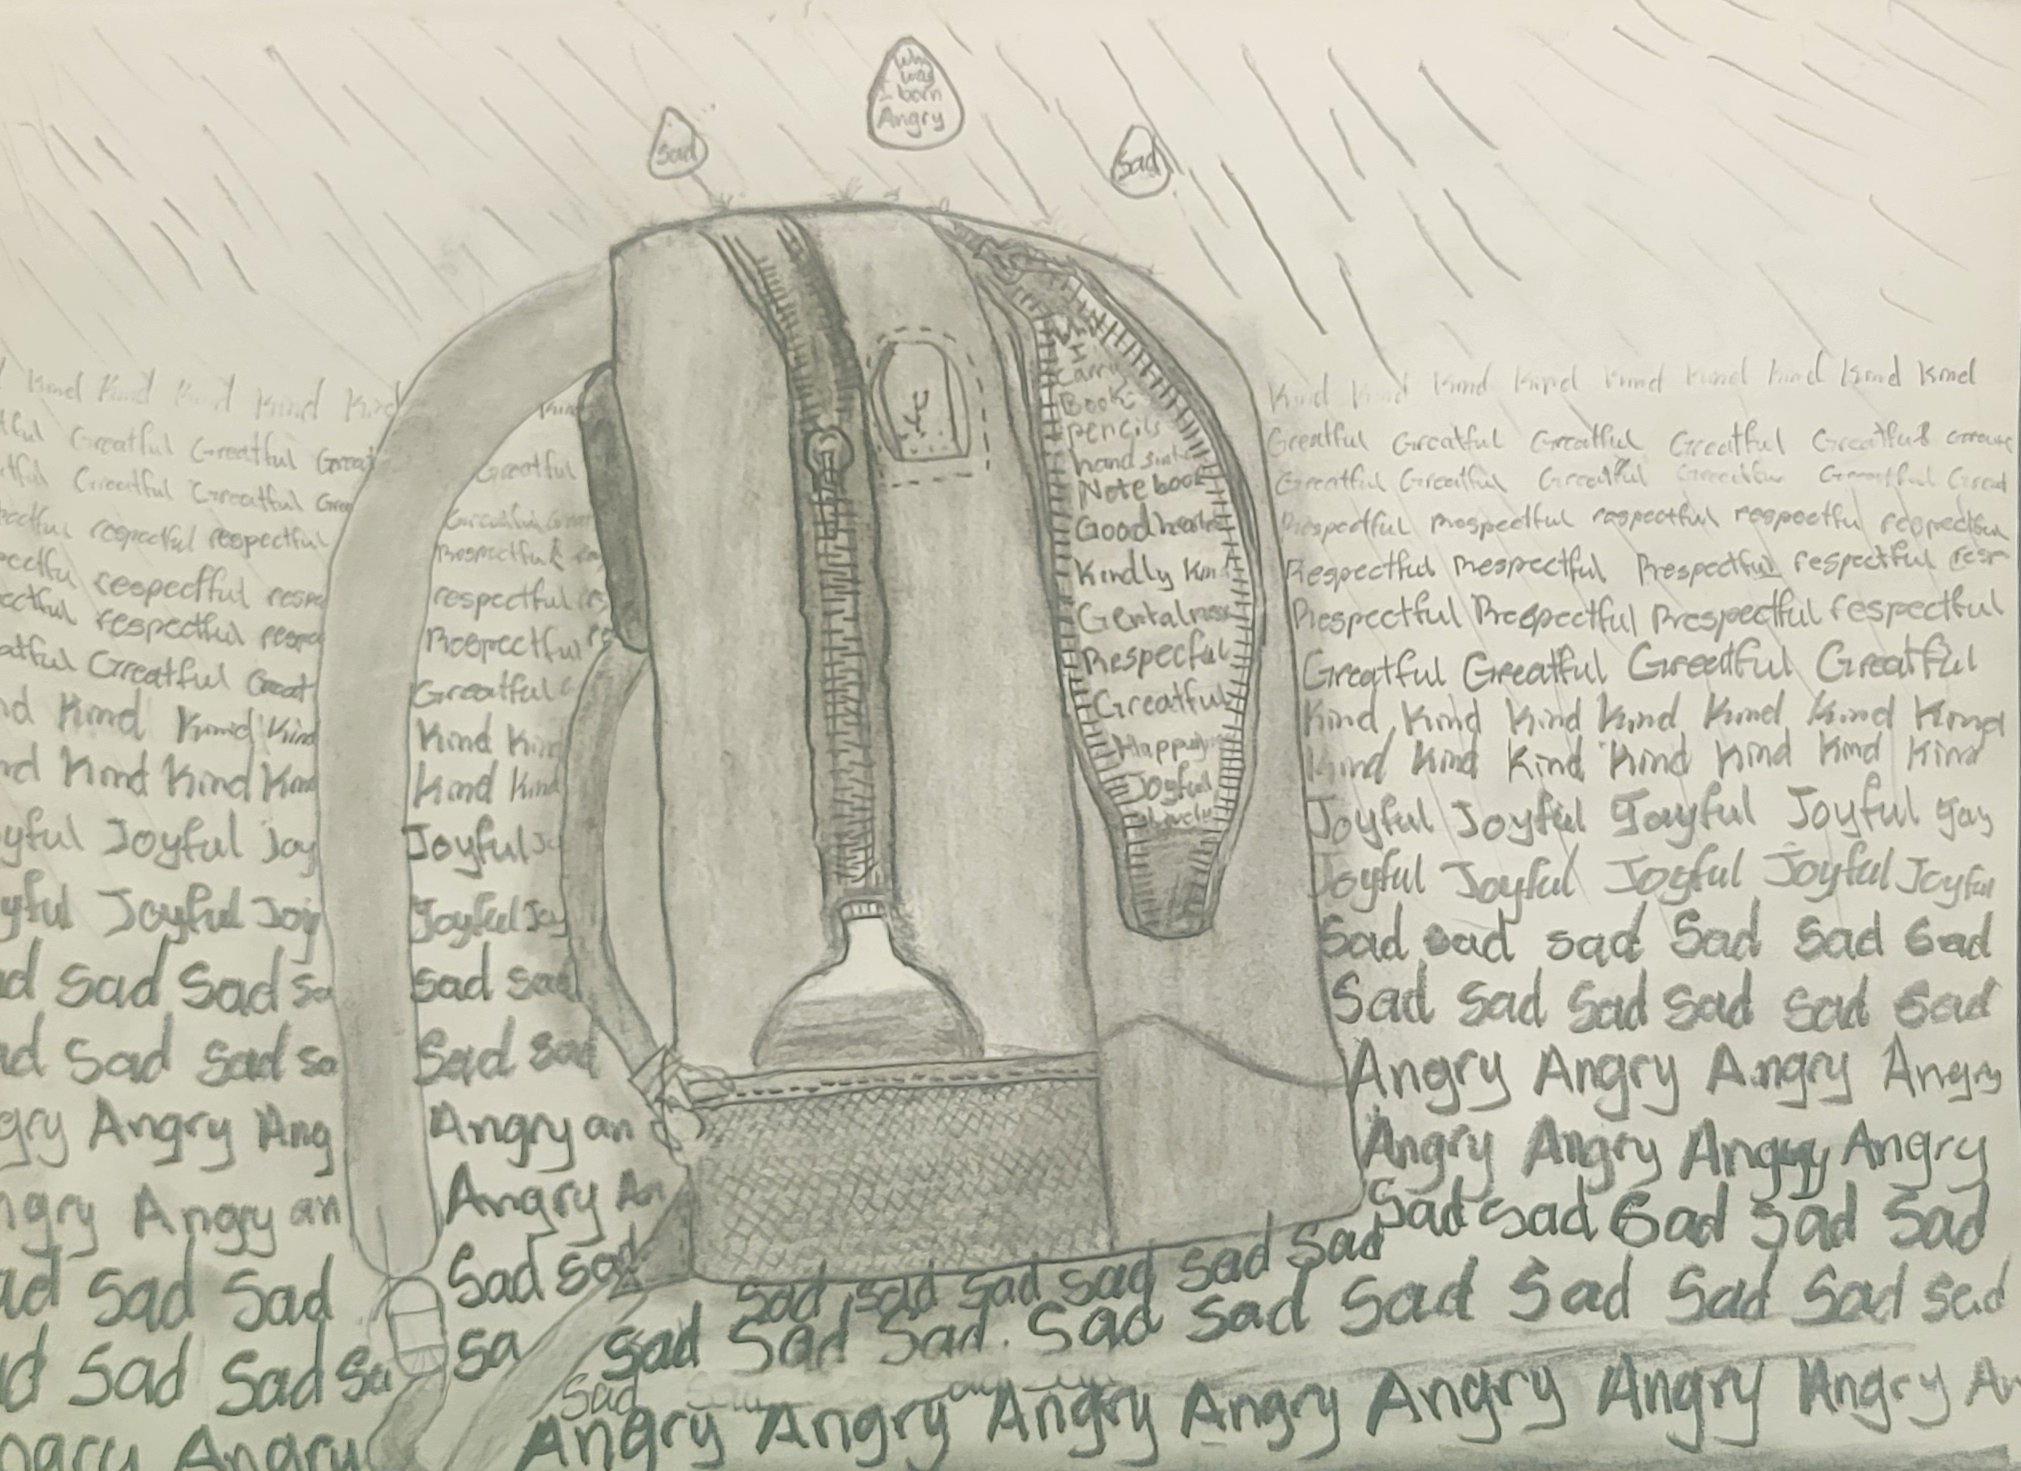 Sad
Why
was
I born
Angry
Sad
Kind Kind Kind Kind Kind
tful Greatful Greatful Great
tful Greatful Greatful Grea
ectful respectful respectful
pectfu respectful respe
ectful respectful respec
atful Greatful Great
nd Kind Kind Kind
nd Kind Kind Kind
yful Joyful Joy
yful Joyful Joy
ad Sad Sad Sa
ad Sad Sad Sa
gry Angry Ang
ngry Angry an
ad Sad Sad
ad Sad Sad Sa
ngry Angry
Kind
Greatful
Respectful
respectful
Respectful re
Greatful
Kind Kind
Kind Kind
Joyful Jo
Joyful Joy
Sad Sad
Sad Sad
Angry an
Angry An
Sad Sad
Sa
I
Carry
Books
pencils
hand
Notebook
Kindly Kin
Respecful
Greatful
Joyful
Kind Kind Kind Kind Kind Kind Kind Kind Kind
Greatful Greatful Greatful Greatful Greatful
Greatful Greatful Greatful Greatful Greatful Great
Respectful Respectful respectful respectful respectful
Respectful Respectful Respectful respectful resp
Respectful Respectful Respectful respectful
Greatful Greatful Greatful Greatful
Kind Kind Kind Kind Kind Kind Kind
Kind Kind Kind Kind Kind Kind Kind
Joyful Joyful Joyful Joyful Joy
Joyful Joyful Joyful Joyful Joyful
Sad Sad Sad Sad Sad Sad
Sad Sad Sad Sad Sad Sad
Angry Angry Angry Angry
Angry Angry Angry Angry
Sad Sad Sad Sad Sad
Sad Sad Sad Sad Sad Sad
Sad Sad Sad Sad Sad Sad Sad Sad Sad Sad
Sad
Angry Angry Angry Angry Angry Angry Angry An